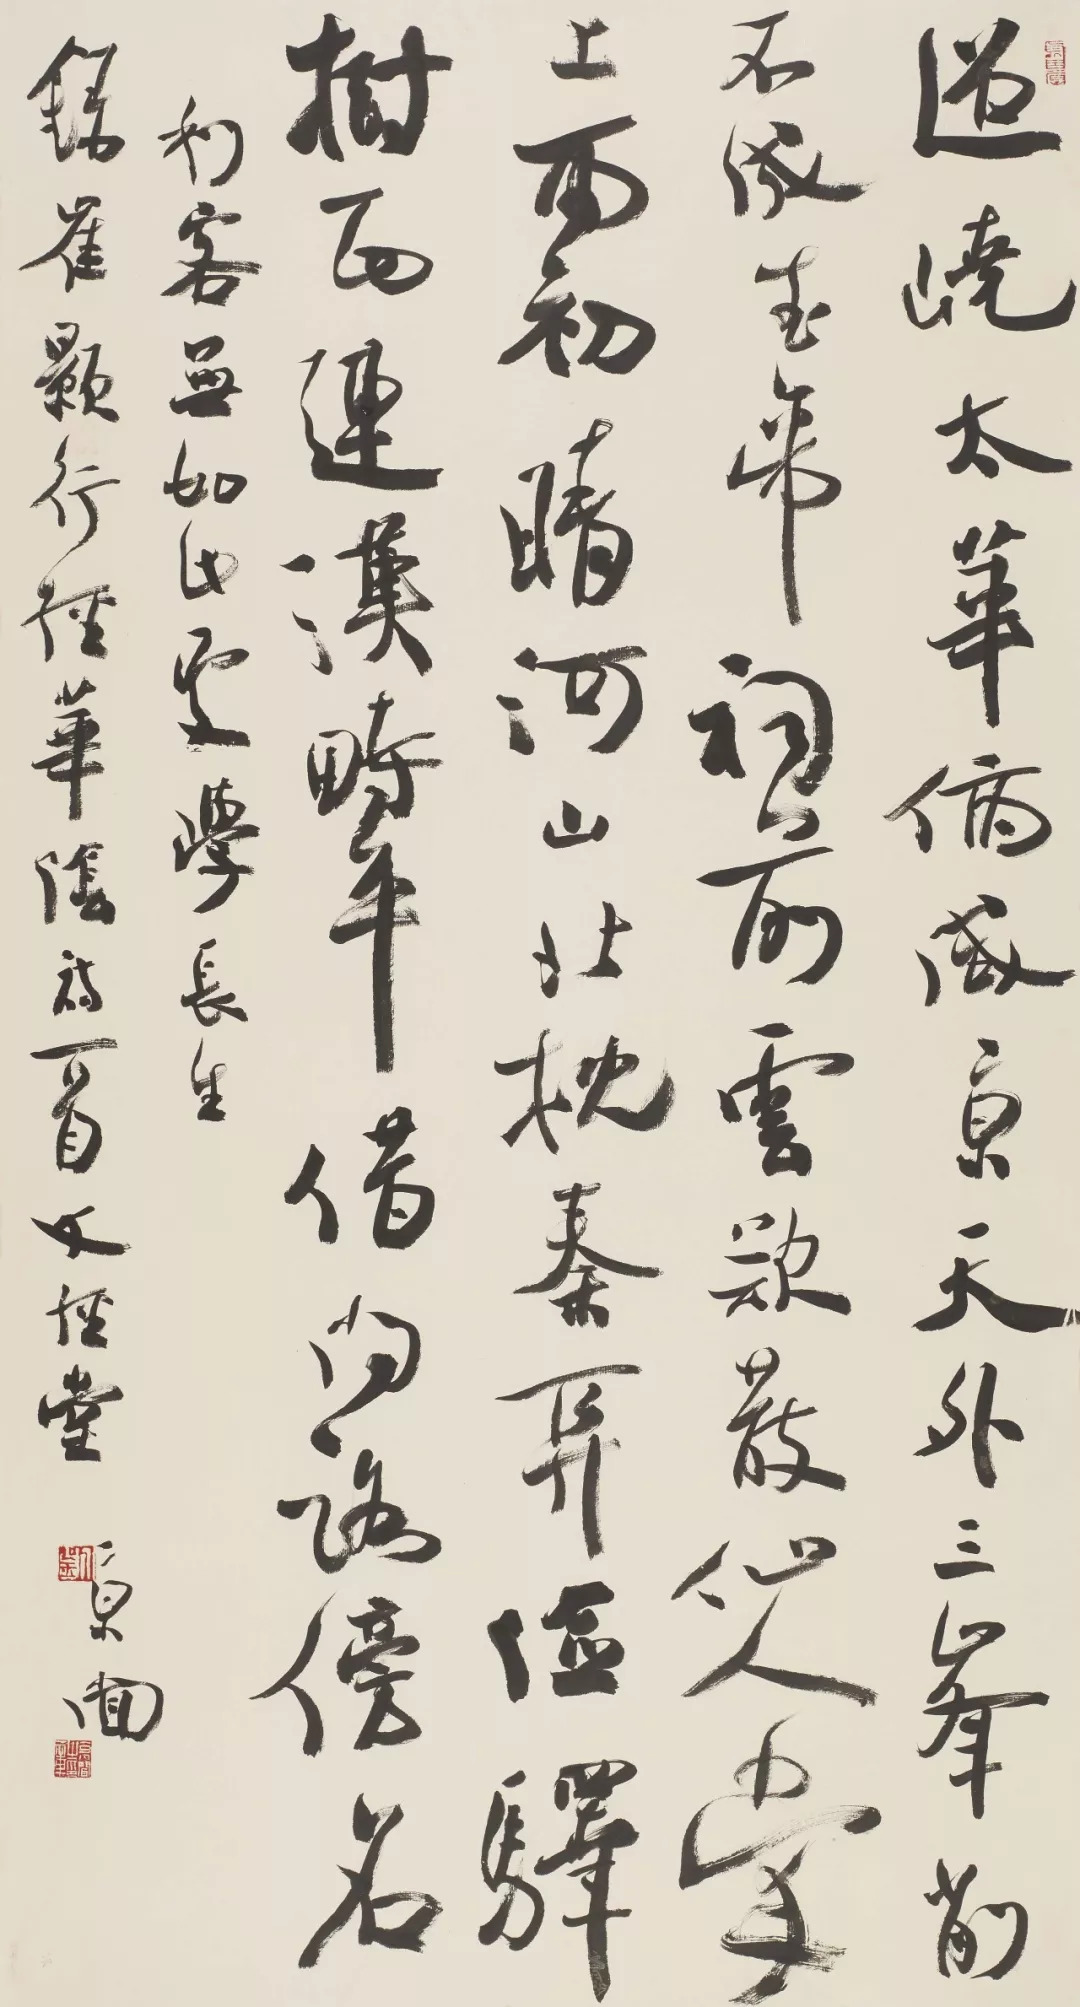 迢嶢太華俯咸京天外三峯削
不成武帝祠前雲欲散仙人掌
上雨初晴河山北枕秦關險驛
樹西連漢畤平借問路傍名
利客無如此處學長生
錄崔顥行經華陰詩一首文經堂